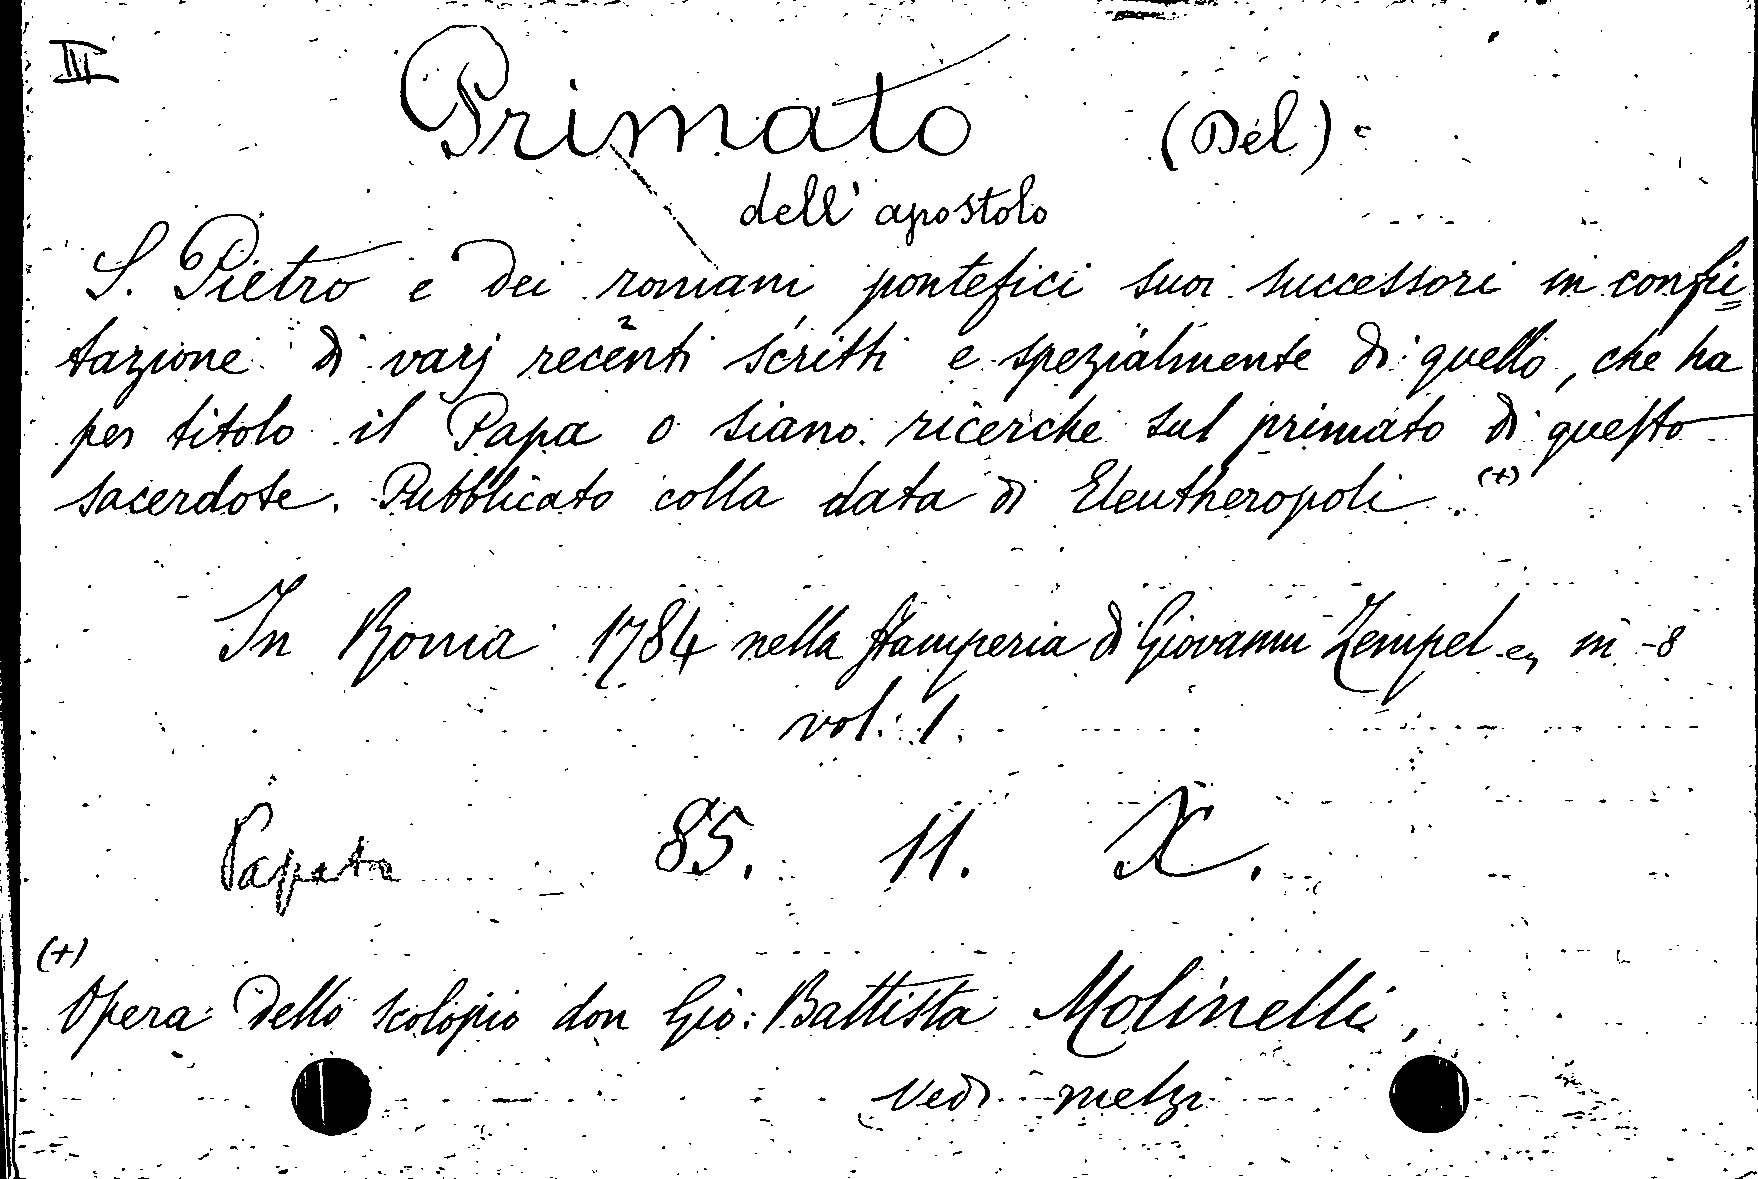 III
Primato (Del)
dell' apostolo
S. Pietro e dei romani pontefici suoi successori in confu=
tazione di varj recenti scritti e spezialmente di quello, che ha
per titolo il Papa o siano ricerche sul primato di questo
sacerdote. Pubblicato colla data di Eleutheropoli. (+)
In Roma 1784 nella stamperia di Giovanni Zempel in-8
vol: 1.
Papato 85. 11. X.
(+)
Opera dello scolopio don Gio: Battista Molinelli,
vedi melzi